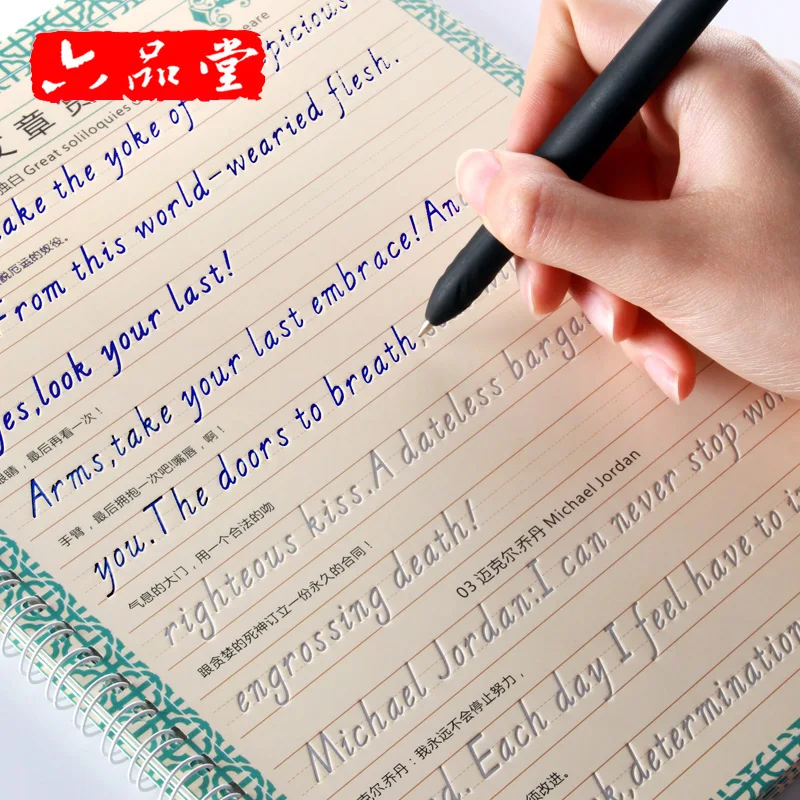 六品堂
文章
独白 Great soliloquies
take the yoke of
From this world-wearied flesh.
脱厄运的奴役。
yes,look your last!
眼睛，最后再看一次！
Arms,take your last embrace! And
手臂，最后拥抱一次吧!嘴唇，啊！
you.The doors to breath,
气息的大门，用一个合法的吻
righteous kiss.A dateless
跟贪婪的死神订立一份永久的合同！
engrossing death!
03 迈克尔.乔丹 Michael Jordan
Michael Jordan:I can never stop
克尔.乔丹：我永远不会停止努力，
Each day I feel have to
须改进。
determination